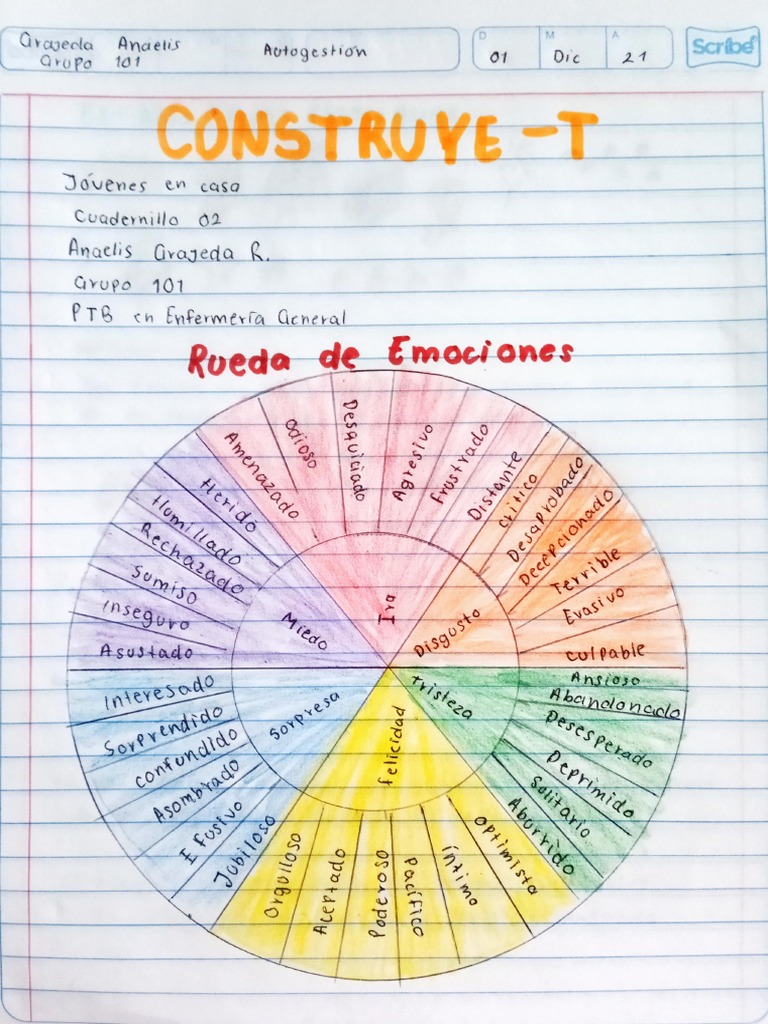 Grajeda Anaelis
Grupo 101
Autogestión
D
01
M
Dic
A
21
Scribe
CONSTRUYE-T
Jóvenes en casa
Cuadernillo 02
Anaelis Grajeda R.
Grupo 101
PTB en Enfermería General
Rueda de Emociones
Ira
Amenazado
Odioso
Desquiciado
Agresivo
Frustrado
Distante
Disgusto
Crítico
Desaprobado
Decepcionado
Terrible
Evasivo
Culpable
Tristeza
Ansioso
Abandonado
Desesperado
Deprimido
Solitario
Aburrido
Felicidad
Optimista
íntimo
Pacífico
Poderoso
Aceptado
Orgulloso
Sorpresa
Jubiloso
Ifusivo
Asombrado
Confundido
Sorprendido
Interesado
Miedo
Asustado
Inseguro
Sumiso
Rechazado
Humillado
Herido